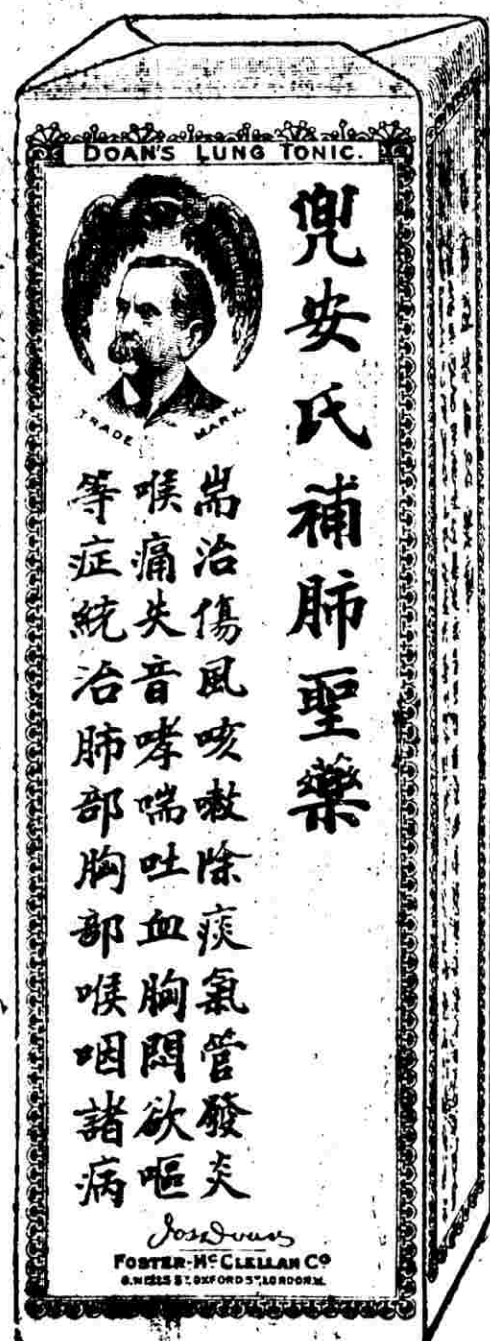 DOAN'S LUNG TONIC.
TRADE MARK.
兜安氏補肺聖藥
耑治傷風咳嗽除痰氣管發炎
喉痛失音哮喘吐血胸悶欲嘔
等症統治肺部胸部喉咽諸病
FOSTER-McCLELLAN Co
8, WELLS ST, OXFORD ST, LONDON, W.